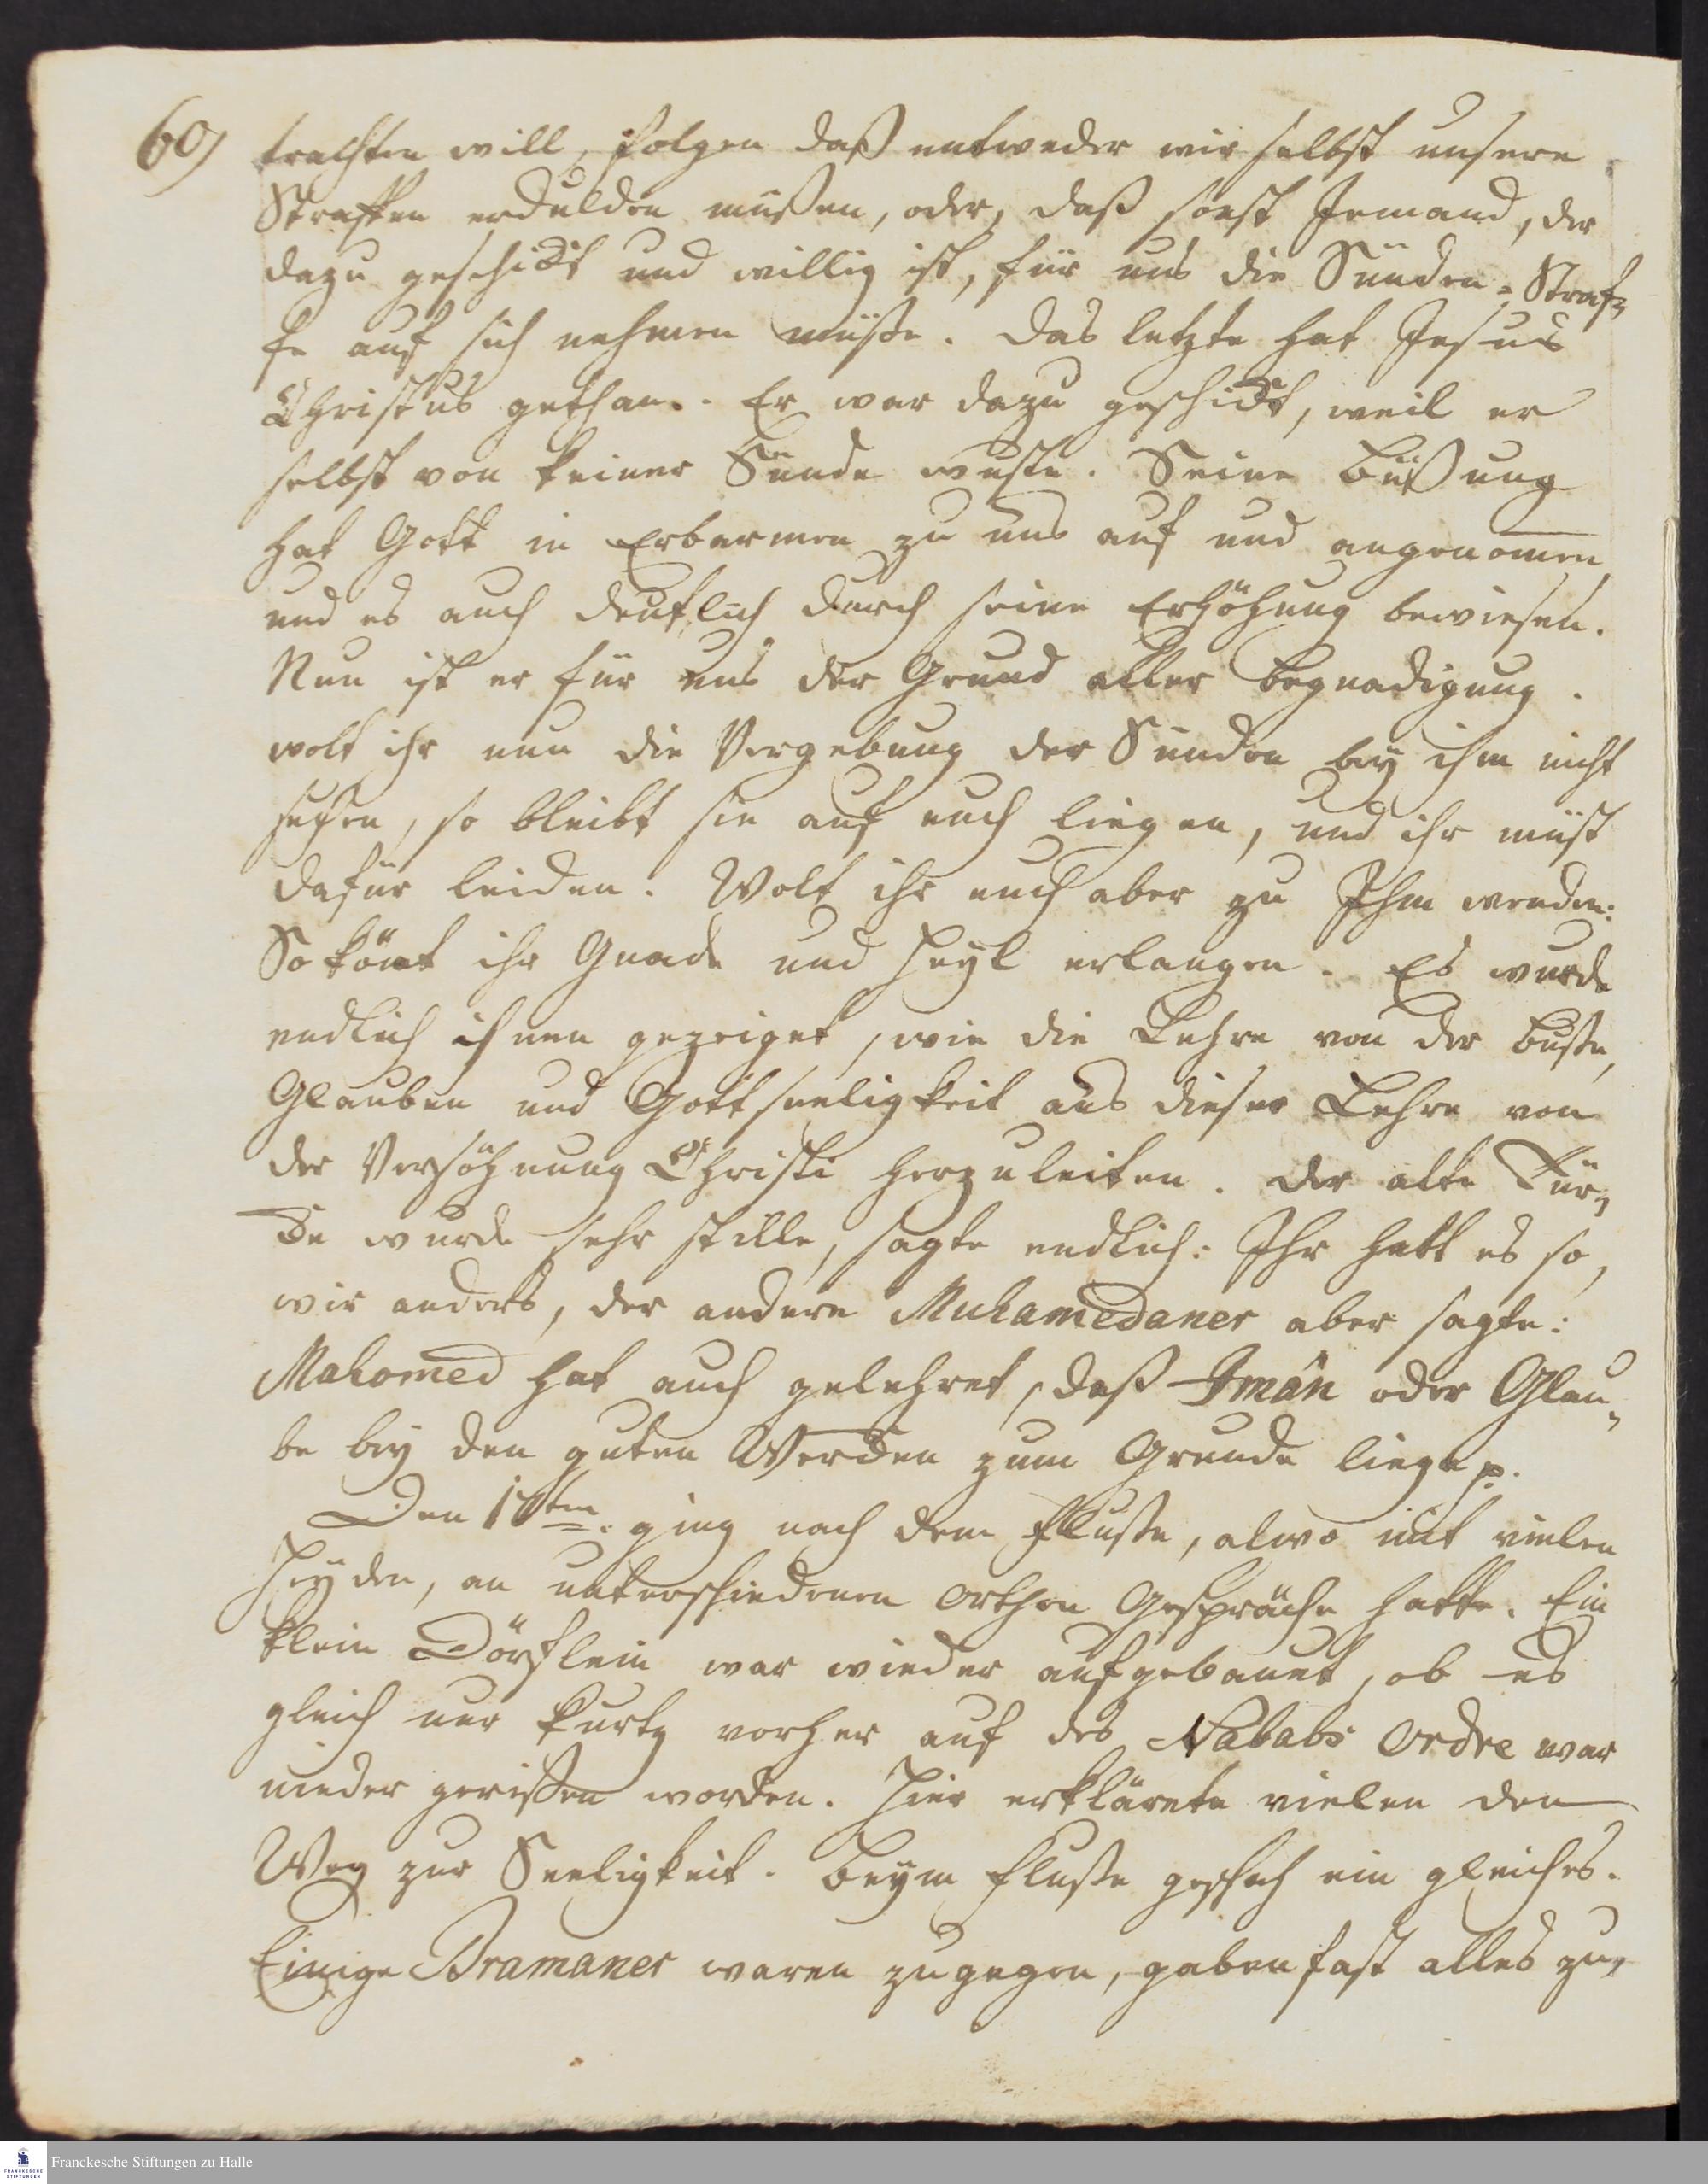 60) trachten will, folgen daß entweder wir selbst unsere
Straffen erdulden müßen, oder, daß sonst Jemand, der
dazu geschickt und willig ist, für uns die Sünden-Straf-
fe auf sich nehmen müße. Das letzte hat Jesus
Christus gethan. Er war dazu geschickt, weil er
selbst von keiner Sünde wuste. Seine Büßung
hat Gott in Erbarmen zu uns auf und angenomen
und es auch deutlich durch seine Erhöhung bewiesen.
Nun ist er für uns der Grund aller Begnadigung.
wolt ihr nun die Vergebung der Sünden bey ihm nicht
suchen, so bleibt sie auf euch liegen, und ihr müst
dafür leiden. Wolt ihr euch aber zu Ihm wenden:
So könt ihr Gnade und Heyl erlangen. Es wurde
endlich ihnen gezeiget, wie die Lehre von der Buße,
Glauben und Gottseeligkeit aus dieser Lehre von
der Versöhnung Christi herzuleiten. Der alte Tür-
cke wurde sehr stille, sagte endlich: Ihr habt es so,
wir anders, der andere Muhamedaner aber sagte:
Mahomed hat auch gelehret, daß Imân oder Glau-
be bey den guten Wercken zum Grunde liege p.
Den 17ten. ging nach dem Fluße, alwo mit vielen
Heyden, an unterschiedenen Orthen Gespräche hatte. Ein
klein Dörflein war wieder aufgebauet, ob es
gleich nur kurtz vorher auf des Nababs Ordre war
nieder gerißen worden. Hier erklärete vielen den
Weg zur Seeligkeit. Beym Fluße geschah ein gleiches.
Einige Bramaner waren zugegen, gaben fast alles zu,
Franckesche Stiftungen zu Halle